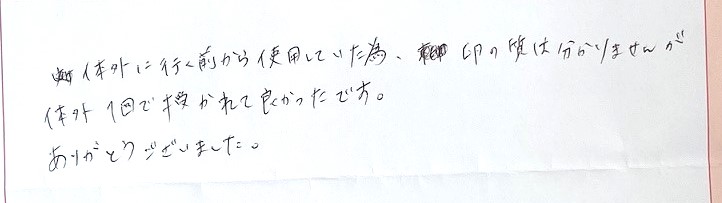 体外に行く前から使用していた為、卵の質は分かりませんが
体外1回で授かれて良かったです。
ありがとうございました。